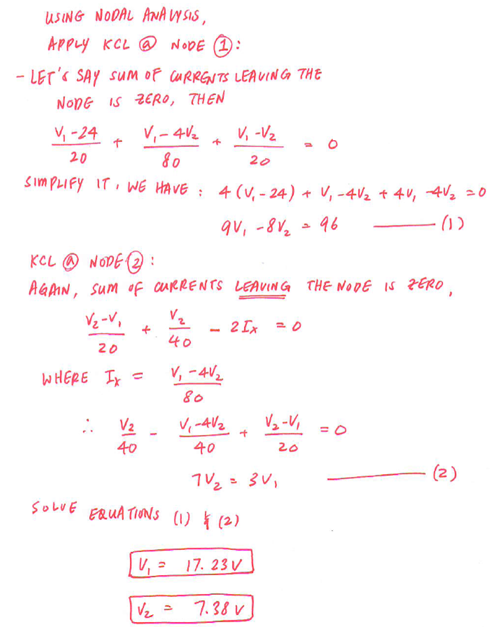 USING NODAL ANALYSIS,
APPLY KCL @ NODE ①:
- LET'S SAY SUM OF CURRENTS LEAVING THE
NODE IS ZERO, THEN
(V₁ - 24)/20 + (V₁ - 4V₂)/80 + (V₁ - V₂)/20 = 0
SIMPLIFY IT, WE HAVE : 4(V₁ - 24) + V₁ - 4V₂ + 4V₁ - 4V₂ = 0
9V₁ - 8V₂ = 96 ——— (1)
KCL @ NODE ②:
AGAIN, SUM OF CURRENTS LEAVING THE NODE IS ZERO,
(V₂ - V₁)/20 + V₂/40 - 2Iₓ = 0
WHERE Iₓ = (V₁ - 4V₂)/80
∴ V₂/40 - (V₁ - 4V₂)/40 + (V₂ - V₁)/20 = 0
7V₂ = 3V₁ ——— (2)
SOLVE EQUATIONS (1) & (2)
V₁ = 17.23V
V₂ = 7.38V